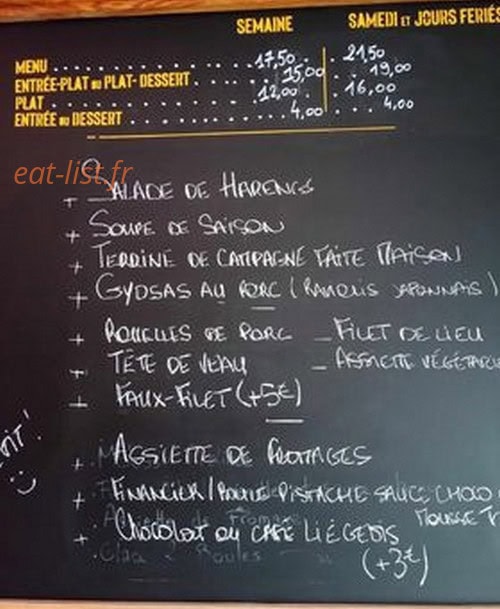 SEMAINE SAMEDI ET JOURS FERIÉS
MENU . . . . . . . . . . . . . . . . . 17,50 . . 21,50
ENTRÉE-PLAT OU PLAT-DESSERT . . . . . 15,00 . . 19,00
PLAT . . . . . . . . . . . . . . . . . 12,00 . . 16,00
ENTRÉE OU DESSERT . . . . . . . . . . . 4,00 . . 4,00
eat-list.fr
+ SALADE DE HARENGS
+ SOUPE DE SAISON
+ TERRINE DE CAMPAGNE FAITE MAISON
+ GYOSAS AU PORC (RAVIOLIS JAPONNAIS)
+ ROUELLES DE PORC - FILET DE LIEU
+ TÊTE DE VEAU - ASSIETTE VÉGÉTARIE
+ FAUX-FILET (+5€)
+ ASSIETTE DE FROMAGES
+ FINANCIER / BOULE PISTACHE SAUCE CHOCO
MOUSSE
+ CHOCOLAT OU CAFÉ LIÉGEOIS
(+3€)